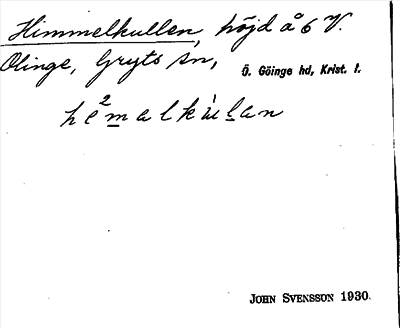 Himmelkullen, höjd å 6 V.
Olinge, Gryts sn, Ö. Göinge hd, Krist. l.
he²malkùlan
JOHN SVENSSON 1930.